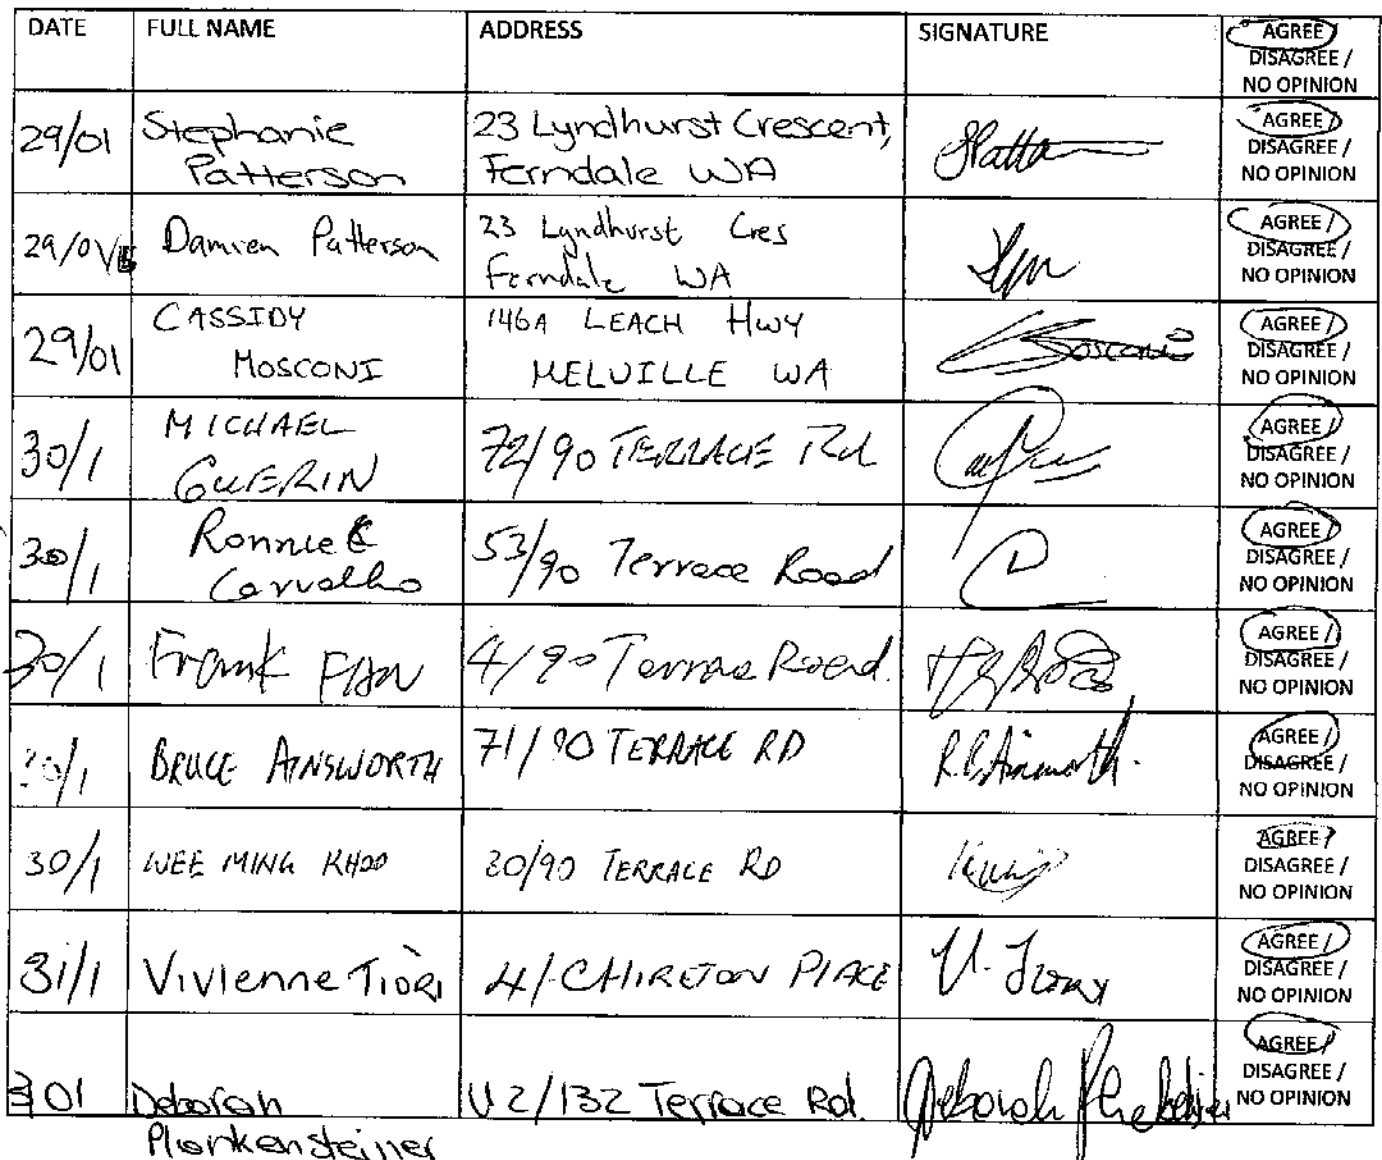 DATE FULL NAME ADDRESS SIGNATURE AGREE /
DISAGREE /
NO OPINION
29/01 Stephanie Patterson 23 Lyndhurst Crescent, Ferndale WA AGREE /
DISAGREE /
NO OPINION
29/01 Damien Patterson 23 Lyndhurst Cres Ferndale WA AGREE /
DISAGREE /
NO OPINION
29/01 CASSIDY MOSCONI 146A LEACH HWY MELVILLE WA AGREE /
DISAGREE /
NO OPINION
30/1 MICHAEL GUERIN 72/90 TERRACE Rd AGREE /
DISAGREE /
NO OPINION
30/1 Ronnie Carvalho 53/90 Terrace Road AGREE /
DISAGREE /
NO OPINION
30/1 Frank 4/90 Terrace Road. AGREE /
DISAGREE /
NO OPINION
30/1 BRUCE AINSWORTH 71/90 TERRACE RD R.B. Ainsworth. AGREE /
DISAGREE /
NO OPINION
30/1 WEE MING KHOO 30/90 TERRACE RD AGREE /
DISAGREE /
NO OPINION
31/1 Vivienne 4/- CHIRETON PLACE V. AGREE /
DISAGREE /
NO OPINION
301 Deborah U2/132 Terrace Rd. Deborah AGREE /
DISAGREE /
NO OPINION
Plankensteiner